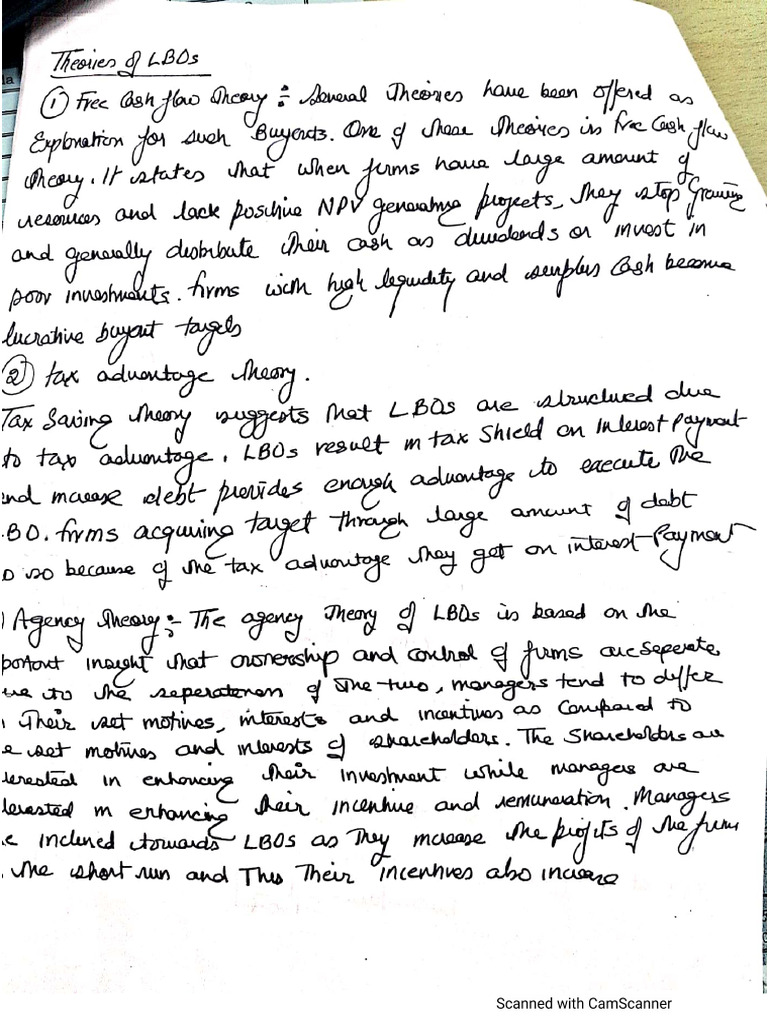 Theories of LBOs
① Free Cash flow Theory :- Several Theories have been offered as
Explanation for such Buyouts. One of these Theories is free Cash flow
Theory. It states that when firms have large amount of
resources and lack positive NPV generating projects, They stop Growing
and generally distribute their cash as dividends or invest in
poor investments. firms with high liquidity and surplus Cash become
lucrative buyout targets
② tax advantage theory.
Tax Saving Theory suggests that LBOs are structured due
to tax advantage. LBOs result in tax Shield on Interest Payment
and increase debt provides enough advantage to execute the
BO. firms acquiring target through large amount of debt
so because of the tax advantage they get on interest Payment
) Agency Theory :- The agency Theory of LBOs is based on the
portant insight that ownership and control of firms are seperate
to the seperateness of the two, managers tend to differ
Their set motives, interests and incentives as Compared to
e set motives and interests of shareholders. The Shareholders are
terested in enhancing their investment while managers are
terested in enhancing their incentive and remuneration. Managers
e inclined towards LBOs as They increase the profits of the firms
the short run and Thus Their incentives also increase
Scanned with CamScanner